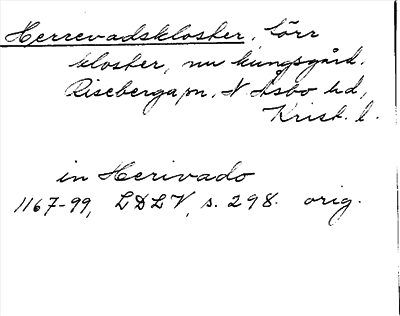 Herrevadskloster, förr
kloster, nu kungsgård.
Riseberga sn, N Åsbo hd,
Krist. l.
in Herivado
1167-99, LDLV, s. 298. orig.